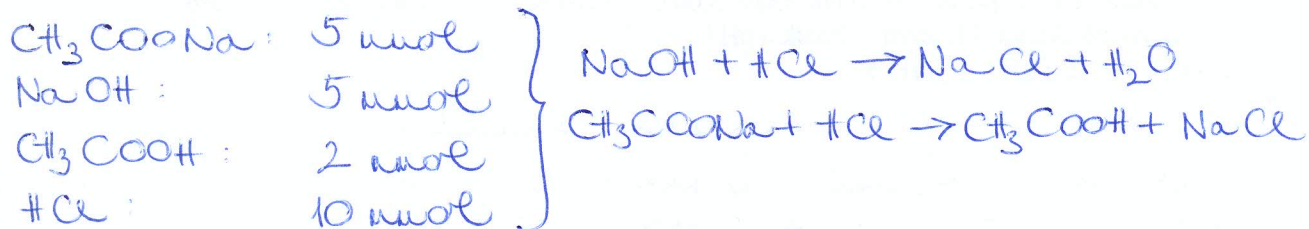 CH₃COONa: 5 mmol
NaOH: 5 mmol
CH₃COOH: 2 mmol
HCl: 10 mmol
NaOH + HCl → NaCl + H₂O
CH₃COONa + HCl → CH₃COOH + NaCl